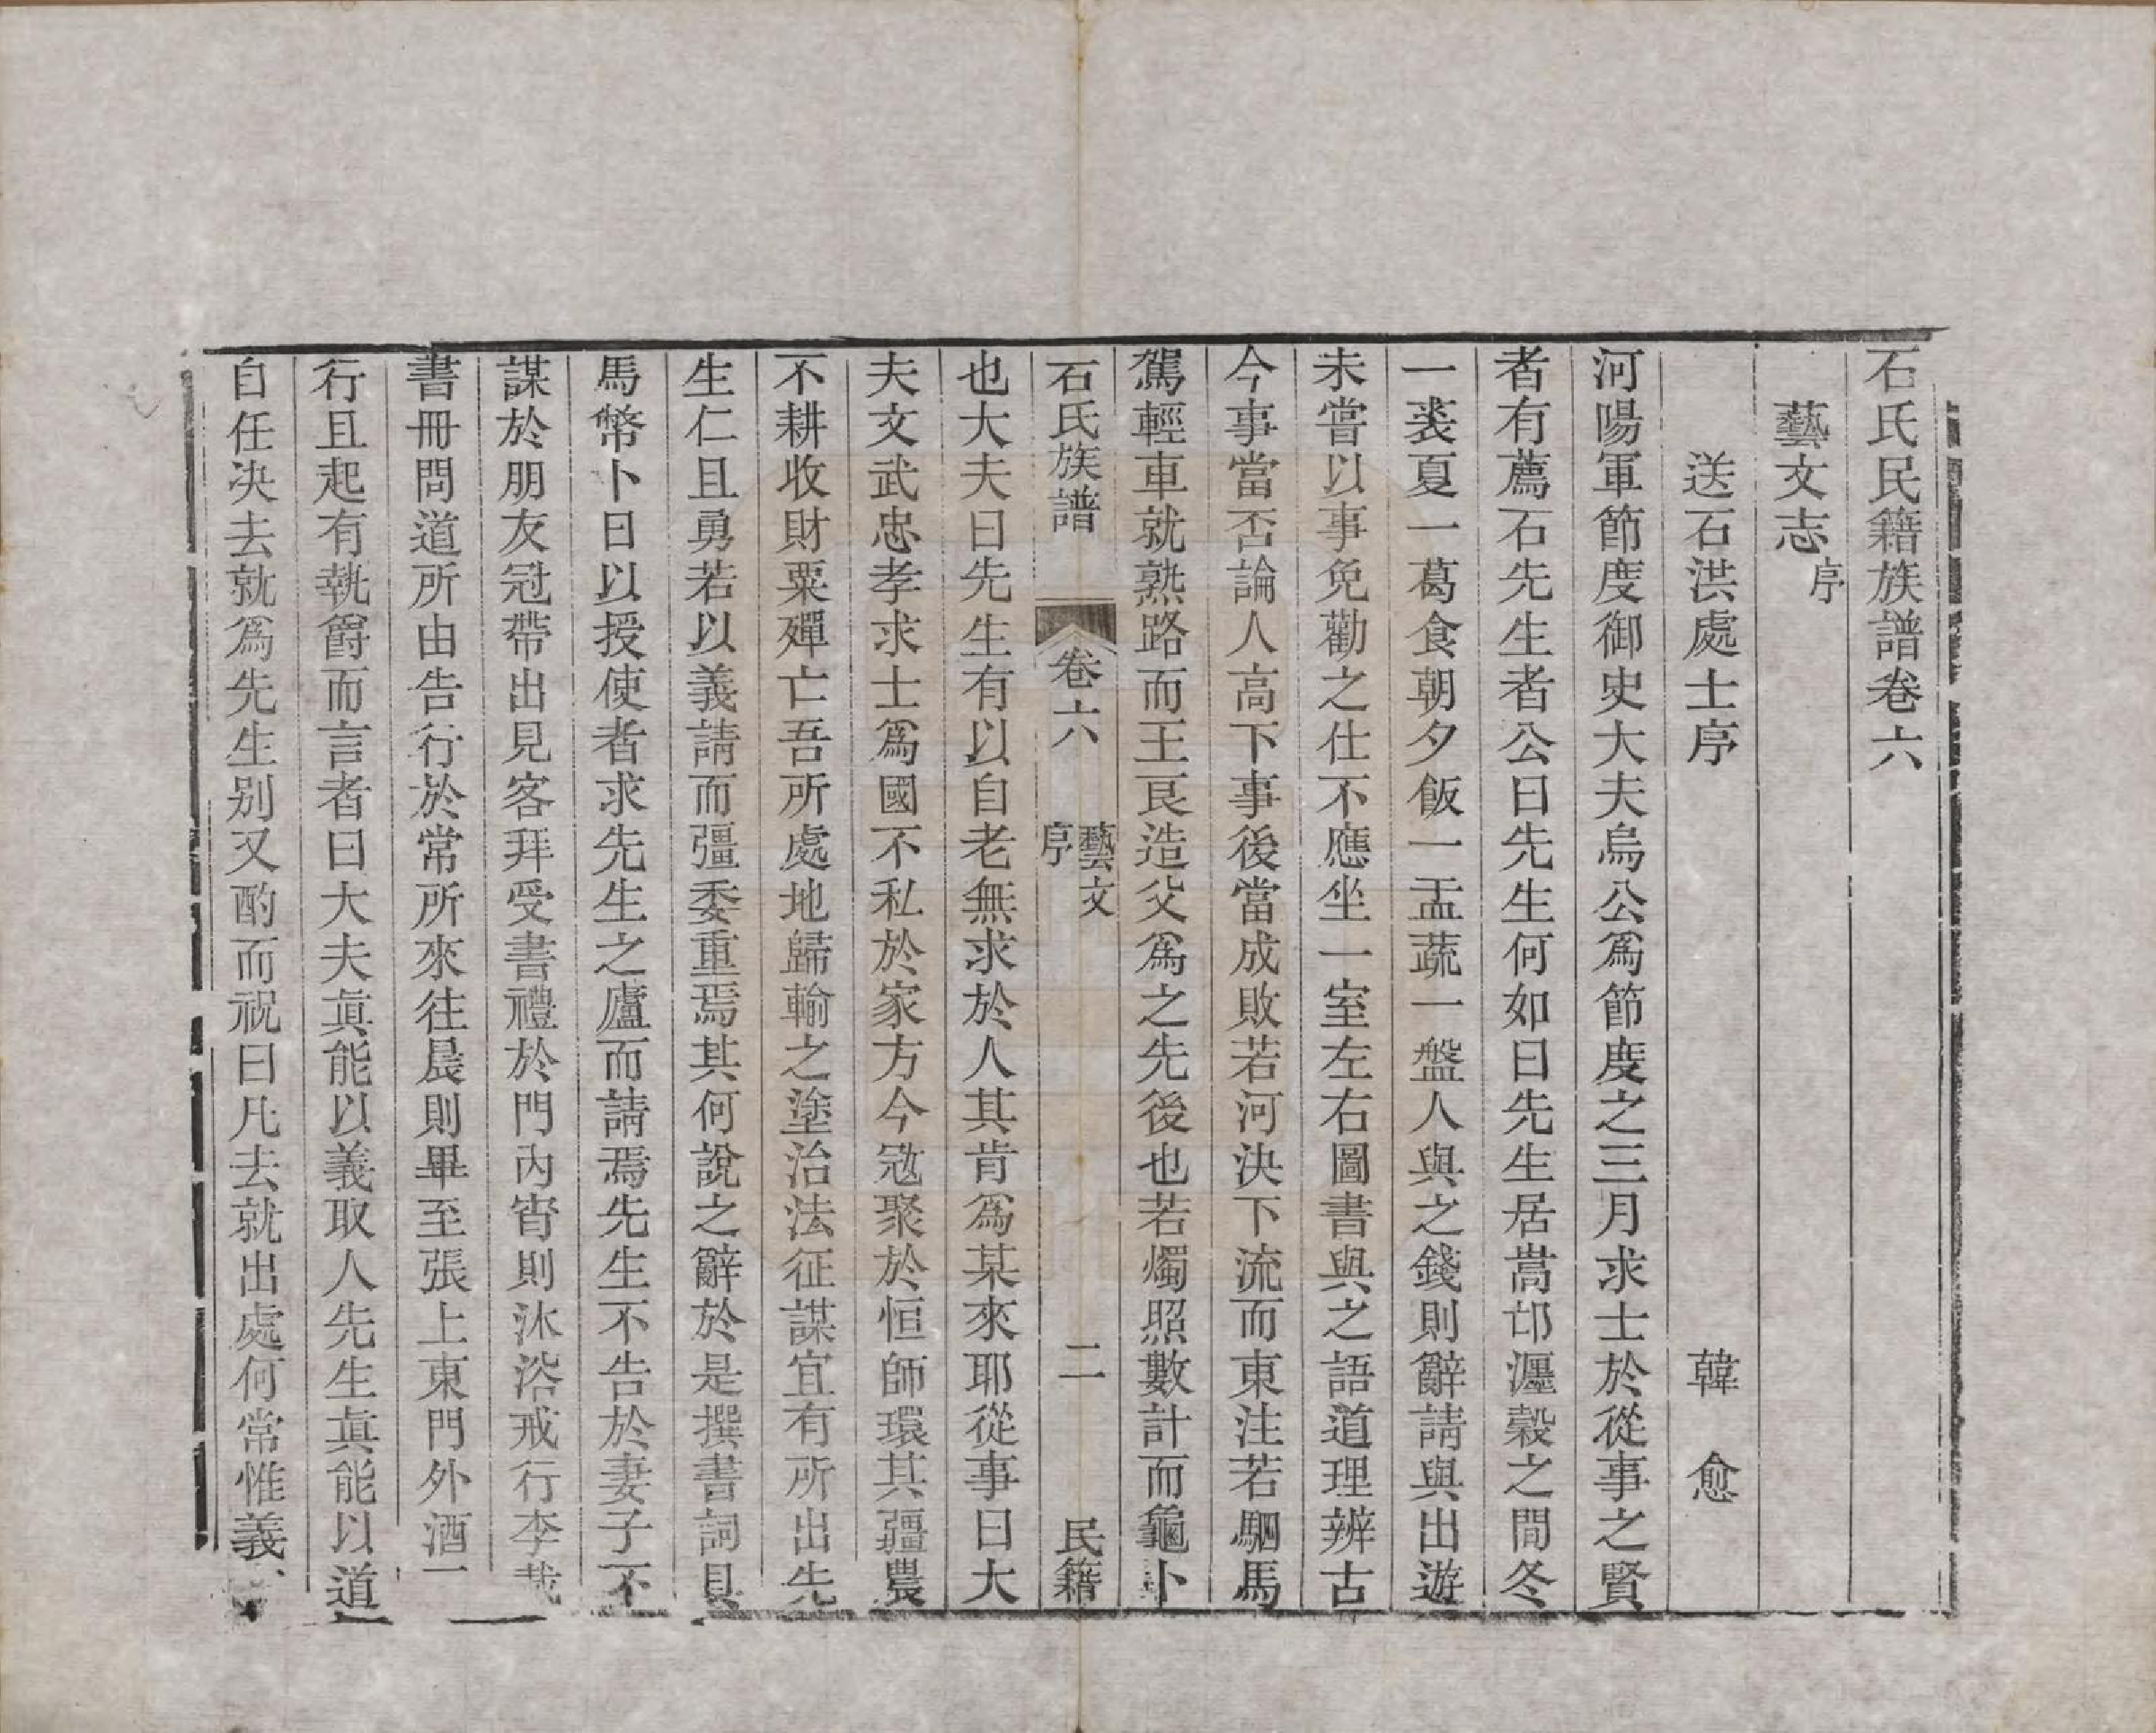 石氏民籍族譜卷六
藝文志序
送石洪處士序 韓愈
河陽軍節度御史大夫烏公爲節度之三月求士於從事之賢
者有薦石先生者公曰先生何如曰先生居嵩邙瀍穀之間冬
一裘夏一葛食朝夕飯一盂蔬一盤人與之錢則辭請與出遊
未嘗以事免勸之仕不應坐一室左右圖書與之語道理辨古
今事當否論人高下事後當成敗若河決下流而東注若駟馬
駕輕車就熟路而王良造父爲之先後也若燭照數計而龜卜
石氏族譜 卷六 藝文序 二 民籍
也大夫曰先生有以自老無求於人其肯爲某來耶從事曰大
夫文武忠孝求士爲國不私於家方今寇聚於恒師環其疆農
不耕收財粟殫亡吾所處地歸輸之塗治法征謀宜有所出先
生仁且勇若以義請而彊委重焉其何說之辭於是撰書詞具
馬幣卜日以授使者求先生之廬而請焉先生不告於妻子不
謀於朋友冠帶出見客拜受書禮於門內宵則沐浴戒行李載
書冊問道所由告行於常所來往晨則畢至張上東門外酒一
行且起有執爵而言者曰大夫眞能以義取人先生眞能以道
自任决去就爲先生別又酌而祝曰凡去就出處何常惟義